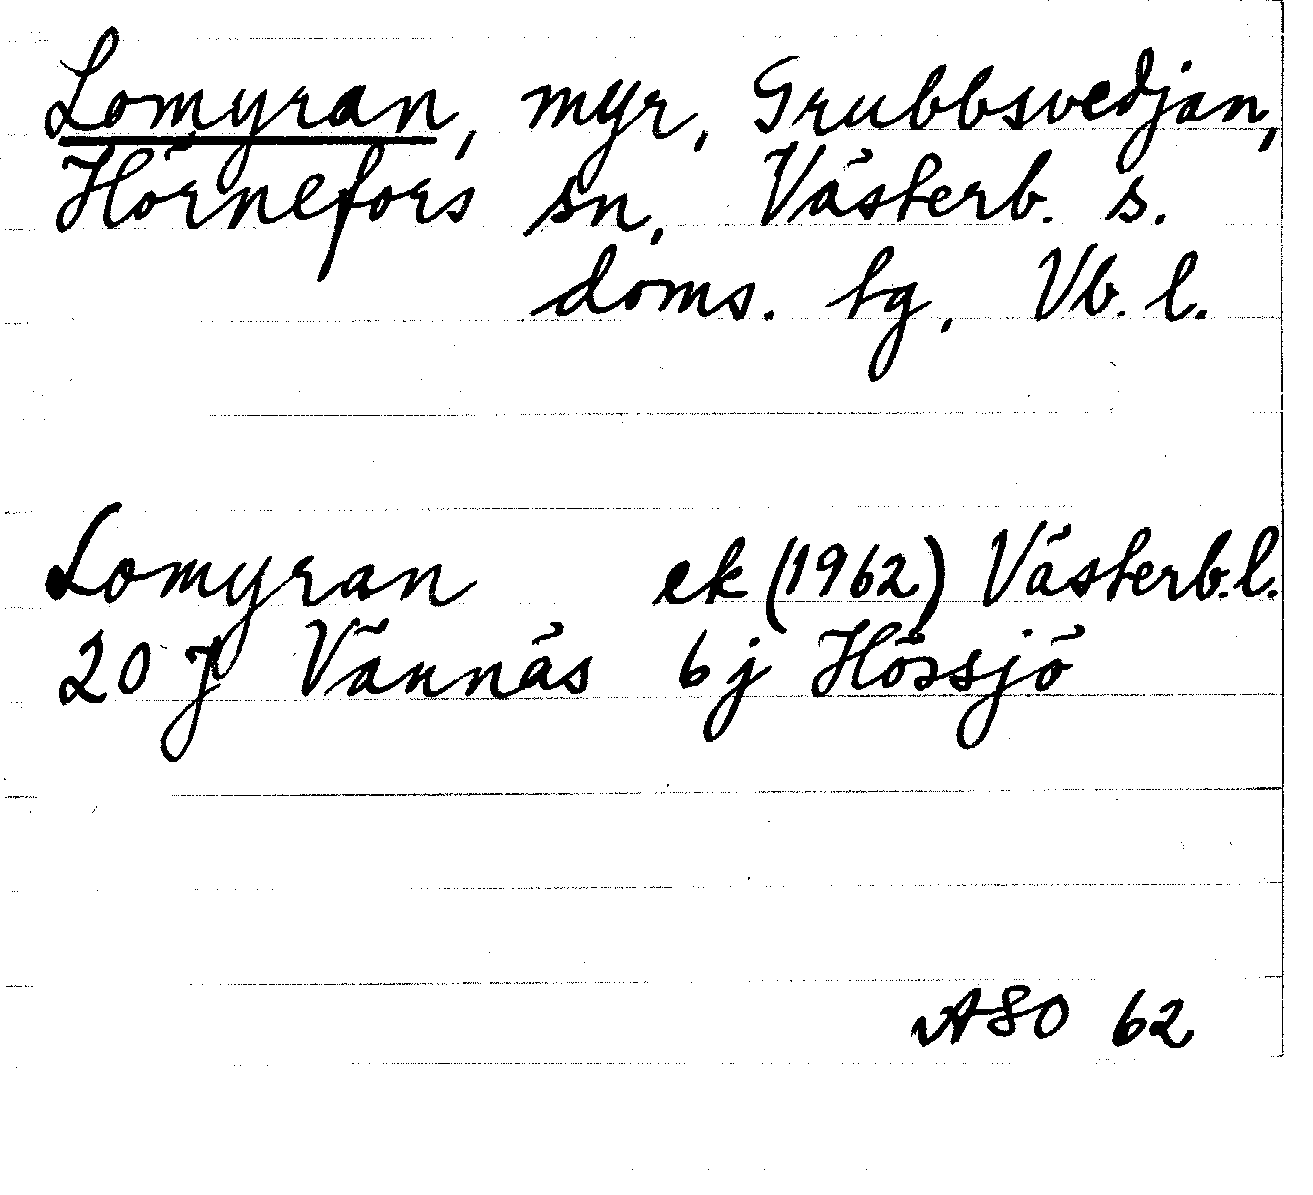 Lomyran, myr, Grubbsvedjan,
Hörnefors sn, Västerb. s.
doms. tg, Vb. l.
Lomyran ek (1962) Västerb. l.
20 J Vännäs 6j Hössjö
ASO 62